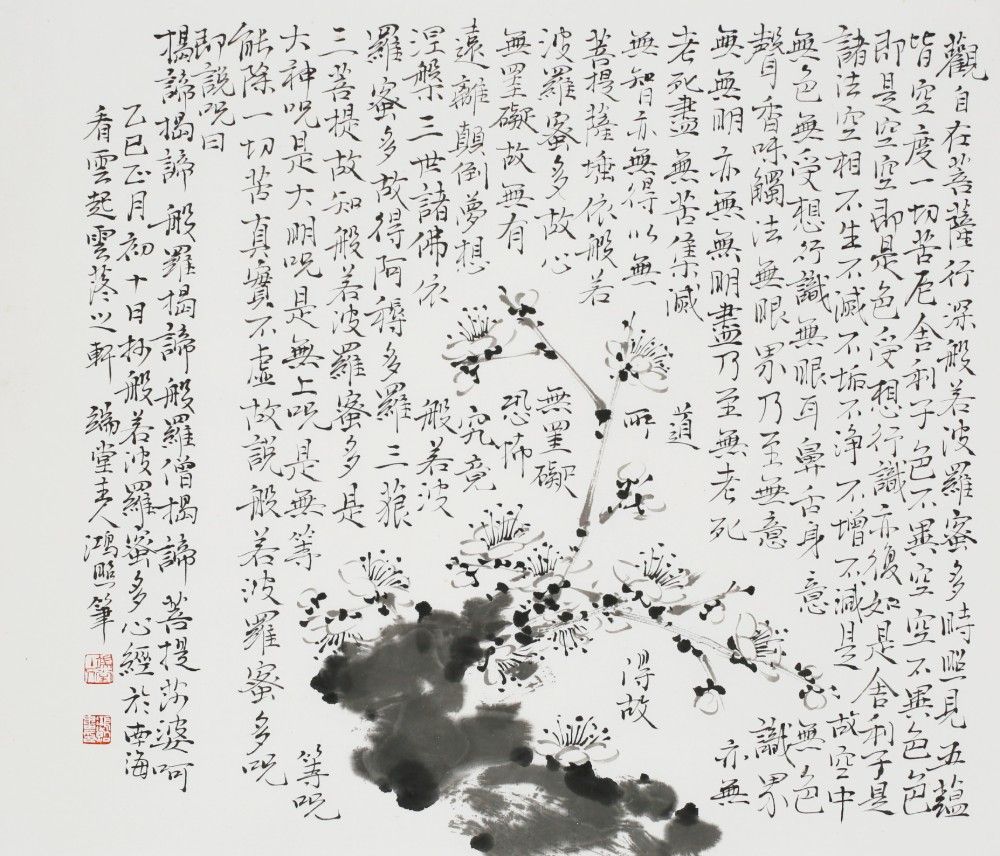 觀自在菩薩行深般若波羅蜜多時照見五蘊
皆空度一切苦厄舍利子色不異空空不異色色
即是空空即是色受想行識亦復如是舍利子是
諸法空相不生不滅不垢不淨不增不減是故空中
無色無受想行識無眼耳鼻舌身意無色
聲香味觸法無眼界乃至無意識界
無無明亦無無明盡乃至無老死亦無
老死盡無苦集滅道
無智亦無得以無所得故
菩提薩埵依般若
波羅蜜多故心無罣礙
無罣礙故無有恐怖
遠離顛倒夢想究竟
涅槃三世諸佛依般若波
羅蜜多故得阿耨多羅三藐
三菩提故知般若波羅蜜多是
大神呪是大明呪是無上呪是無等等呪
能除一切苦真實不虛故說般若波羅蜜多呪
即說呪曰
揭諦揭諦般羅揭諦般羅僧揭諦菩提莎婆呵
乙巳正月初十日抄般若波羅蜜多心經於南海
看雲起雲落之軒端堂主人鴻照筆